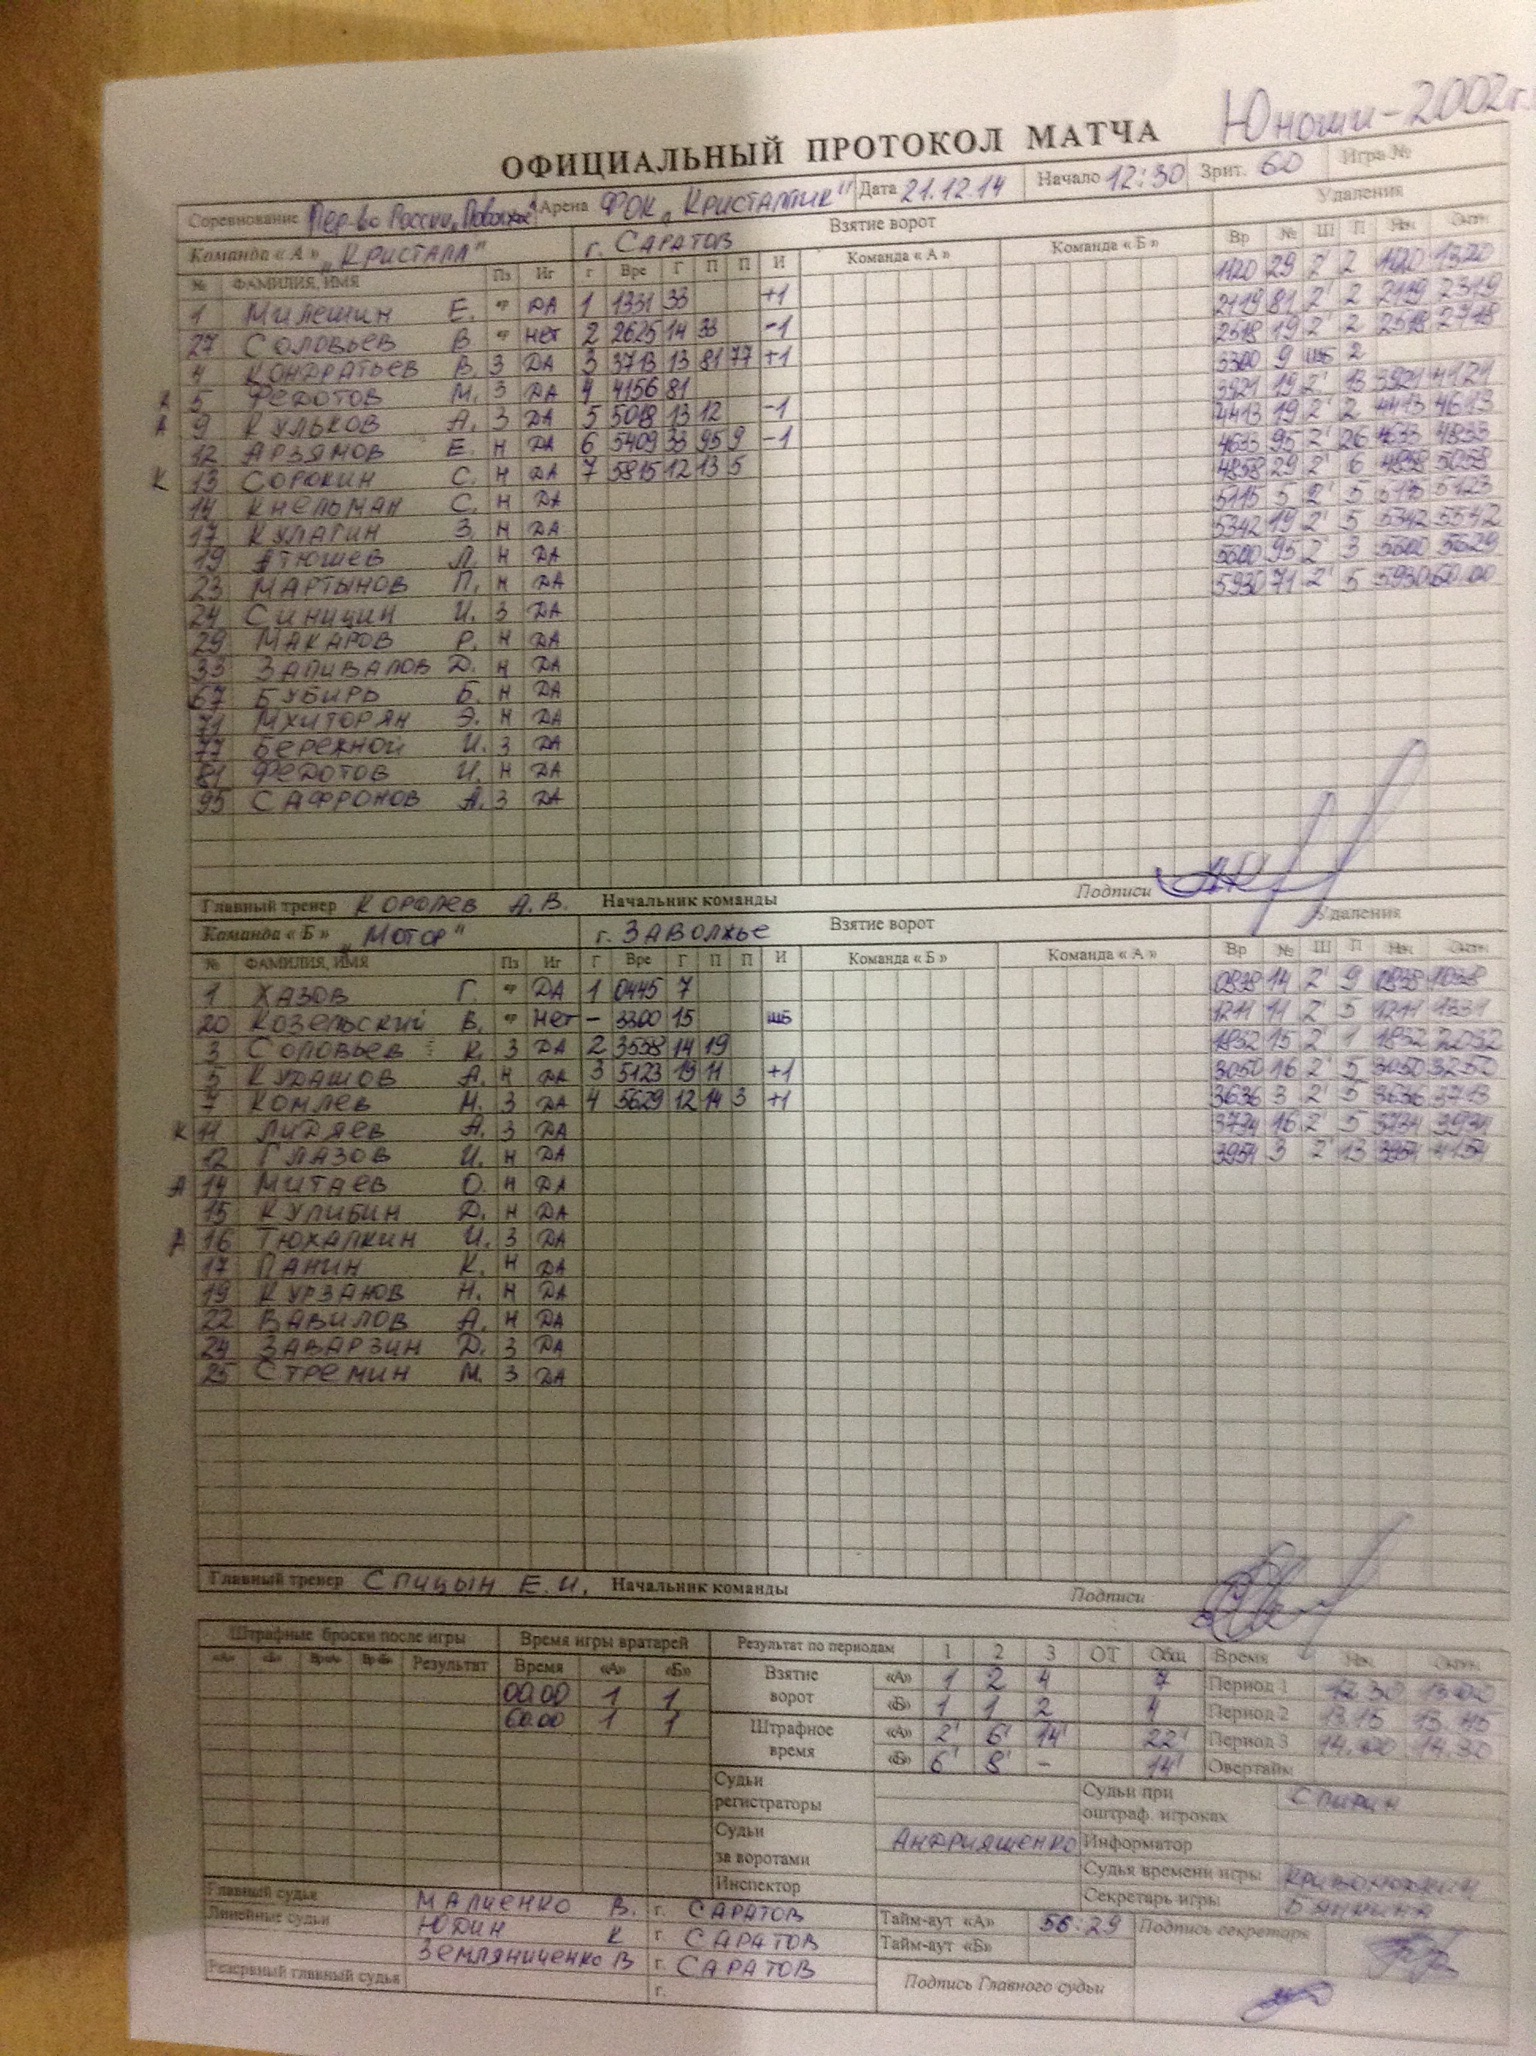 Юноши - 2002 г.
ОФИЦИАЛЬНЫЙ ПРОТОКОЛ МАТЧА
Соревнование Пер-во России, Поволжье Арена ФОК „Кристаллик" Дата 21.12.14 Начало 12:30 Зрит. 60 Игра №
Команда « А » „Кристалл" г. Саратов Взятие ворот Удаления
№ ФАМИЛИЯ, ИМЯ Пз Иг Г Вре Г П П И Команда « А » Команда « Б » Вр № Ш П Нач Окон
1 Милешин Е. ДА 1 1331 33 +1 1120 29 2' 2 1120 1320
27 Соловьев В Нет 2 2625 14 33 -1 2119 81 2' 2 2119 2319
4 Кондратьев В. З ДА 3 3713 13 81 77 +1 2518 19 2' 2 2518 2718
5 Федотов М. З ДА 4 4156 81 3300 9 ШБ 2
А 9 Кульков А. З ДА 5 5018 13 12 -1 3921 19 2' 13 3921 4121
12 Арзямов Е. Н ДА 6 5409 33 95 9 -1 4413 19 2' 2 4413 4613
К 13 Сорокин С. Н ДА 7 5815 12 13 5 4633 95 2' 26 4633 4833
14 Кнельман С. Н ДА 4858 29 2' 6 4858 5058
17 Кулагин З. Н ДА 5115 5 2' 5 5115 5123
19 Атюшев Л. Н ДА 5342 19 2' 5 5342 5542
23 Мартынов П. Н ДА 5600 95 2' 3 5600 5629
24 Синицин И. З ДА 5930 71 2' 5 5930 60.00
29 Макаров Р. Н ДА
33 Запивалов Д. Н ДА
67 Бубирь Б. Н ДА
71 Мхиторян Э. Н ДА
77 Бережной И. З ДА
81 Федотов И. Н ДА
95 Сафронов А. З ДА
Главный тренер Королев А.В. Начальник команды Подписи
Команда « Б » „Мотор" г. Заволжье Взятие ворот Удаления
№ ФАМИЛИЯ, ИМЯ Пз Иг Г Вре Г П П И Команда « Б » Команда « А » Вр № Ш П Нач Окон
1 Хазов Г. ДА 1 0445 7 0838 14 2' 9 0838 1038
20 Козельский В. Нет - 3300 15 ШБ 1211 11 2' 5 1211 1331
3 Соловьев К. З ДА 2 3558 14 19 1832 15 2' 1 1832 2032
5 Кудашов А. Н ДА 3 5123 19 11 +1 3050 16 2' 5 3050 3250
7 Комлев М. З ДА 4 5629 12 14 3 +1 3636 3 2' 5 3636 3713
К 11 Лидяев А. З ДА 3734 16 2' 5 3734 3934
12 Глазов И. Н ДА 3954 3 2' 13 3954 4154
А 14 Митаев О. Н ДА
15 Кулибин Д. Н ДА
А 16 Тюхалкин И. З ДА
17 Панин К. Н ДА
19 Курзанов Н. Н ДА
22 Вавилов А. Н ДА
24 Заварзин Д. З ДА
25 Стремин М. З ДА
Главный тренер Спицын Е.И. Начальник команды Подписи
Штрафные броски после игры Время игры вратарей Результат по периодам 1 2 3 ОТ Общ Время Нач. Окон.
«А» «Б» Вр «А» Вр «Б» Результат Время «А» «Б» Взятие ворот «А» 1 2 4 7 Период 1 12.30 13.02
00.00 1 1 «Б» 1 1 2 4 Период 2 13.15 13.45
60.00 1 1 Штрафное время «А» 2' 6' 14' 22' Период 3 14.00 14.30
«Б» 6' 8' - 14' Овертайм
Судьи регистраторы Судьи при оштраф. игроках Спирин
Судьи за воротами Андриященко Информатор
Судья времени игры
Инспектор Секретарь игры
Главный судья Малиенко В. г. Саратов Тайм-аут «А» 56:29 Подпись секретаря
Линейные судьи Юдин К г. Саратов Тайм-аут «Б»
Земляниченко В г. Саратов
Резервный главный судья г. Подпись Главного судьи